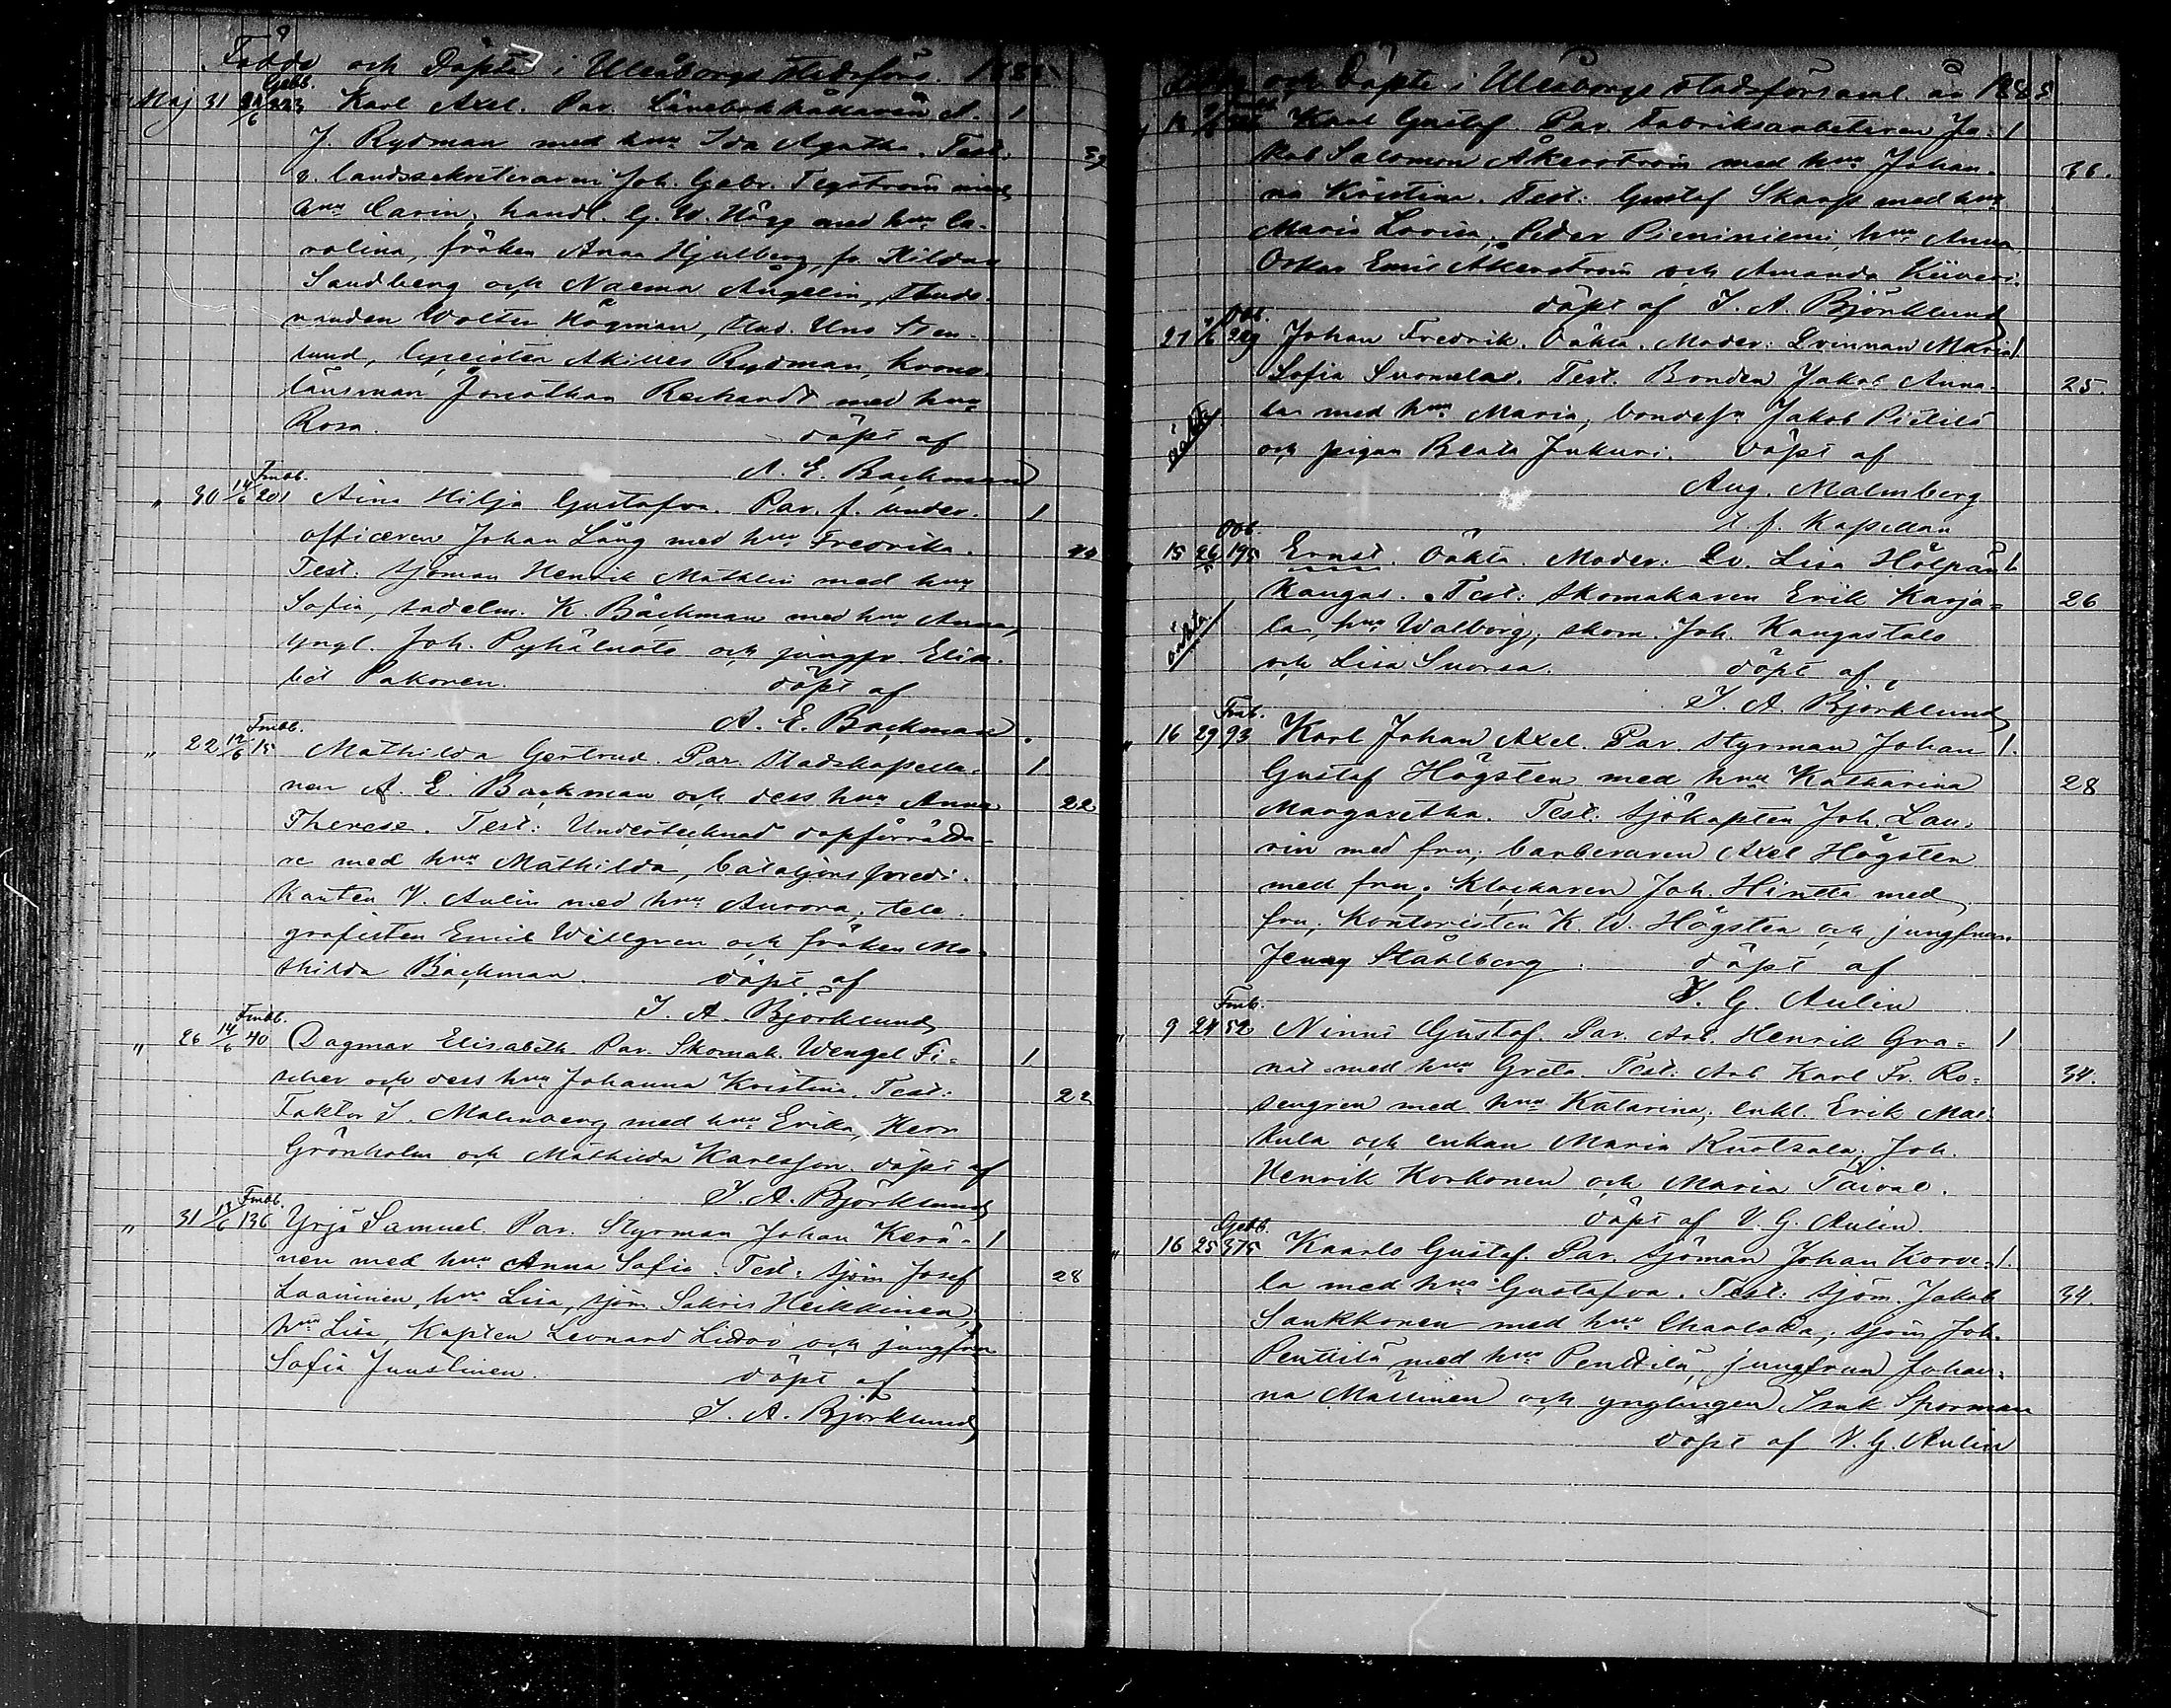 Födde och Döpte i Uleåborgs stadsförs. 1885.
Gebb.
Maj 31 21/6 223 Karl Axel. Par. Länebokhållaren A. 1
J. Rydman med hu Ida Agatha. Test:
v. landssekreteraren Joh. Gabr. Tegström med
hu Carin, handl. G. W. Högg med hu Ca-
rolina, fröken Anna Hjulberg, fr. Hildur
Sandberg och Naema Ångelin, stude-
randen Wolter Högman, stud. Uno Sten-
lund, lyceisten Akilles Rydman, krono-
länsman Jonathan Rechardt med hu
Rosa. döpt af
A. E. Backman
Fmbb.
" 30 14/6 201 Aina Hilja Gustafva. Par. f. under- 1
officeren Johan Lång med hu Fredrika.
Test: sjöman Henrik Mathlin med hu
Sofia, sadelm. K. Bäckman med hu Anna,
yngl. Joh. Pyhäluoto och jungfr. Elisa-
bet Pakonen. döpt af
A. E. Backman.
Fmbb.
" 22 12/6 15 Mathilda Gertrud. Par. Stadskapella- 1
nen A. E. Backman och dess hu Anna 22
Therese. Test: Undertecknad dopförrätta-
re med hu Mathilda, bataljonspredi-
kanten V. Aulin med hu Aurora, tele-
grafisten Emil Willgren och fröken Ma-
thilda Bäckman. döpt af
I. A. Björklund
Fmbb.
" 26 14/6 40 Dagmar Elisabeth Par. Skomak. Wengel Fi- 1
scher och dess hu Johanna Kristina. Test: 22
Faktor I. Malmberg med hu Erika, Herr
Grönholm och Mathilda Karlsson. döpt af
I. A. Björklund
Fmbb.
" 31 13/6 136 Yrjö Samuel. Par. Styrman Johan Kerä- 1
nen med hu Anna Sofia. Test: sjöm Josef 28
Laaninen, hu Lisa, sjöm Sakris Heikkinen,
hu Lisa, Kapten Leonard Lidov och jungfru
Sofia Juustinen. döpt af
I. A. Björklund
och Döpte i Uleåborgs stadsförsaml. år 1885
Karl Gustaf. Par. Fabriksarbetaren Ja- 1
kob Salomon Åkerström med hu Johan- 36.
na Kristina. Test: Gustaf Skarp med hu
Maria Lovisa, Peder Pieniniemi, hu Anna,
Oskar Emil Åkerström och Amanda Kiiveri.
döpt af I. A. Björklund
Obb.
27 /6 229 Johan Fredrik. Oäkta. Moder: Qvinnan Maria 1.
Sofia Suomela. Test. Bonden Jakob Anna- 25.
la med hu Maria, bondes. Jakob Pietilä
oäkta och pigan Beata Jukuri. döpt af
Aug. Malmberg
t. f. Kapellan
Obb.
15 26/5 195 Ernst. Oäkta. Moder: Qv. Lisa Hölpän 1
kangas. Test: Skomakaren Erik Karja- 26
oäkta la, hu Walborg, skom. Joh. Kangastalo
och Lisa Suorsa. döpt af
I. A. Björklund
Fmb.
" 16 29 93 Karl Johan Axel. Par Styrman Johan 1.
Gustaf Högsten med hu Katharina 28
Margaretha. Test. Sjökapten Joh. Lau-
rin med fru, barberaren Axel Högsten
med fru, Klockaren Joh. Hinta med
fru, Kontoristen K. W. Högsten och jungfrun
Jenny Ståhlberg. döpt af
V. G. Aulin
Fmb.
" 9 24 52 Ninni Gustaf. Par. Arb. Henrik Gra- 1
nat med hu Greta. Test: Arb Karl Fr. Ro- 34.
sengren med hu Katarina, enkl. Erik Mat-
kula och enkan Maria Kuolsala, Joh.
Henrik Korkonen och Maria Taival.
döpt af V. G. Aulin
Gebb.
" 16 25 375 Kaarlo Gustaf. Par. sjöman Johan Korve- 1.
la med hu Gustafva. Test: sjöm. Jakob 34.
Saukkonen med hu Charlotta, sjöm Joh.
Penttilä med hu Penttilä, jungfrun Johan-
na Mallinen och ynglingen Isak Sporman
döpt af V. G. Aulin